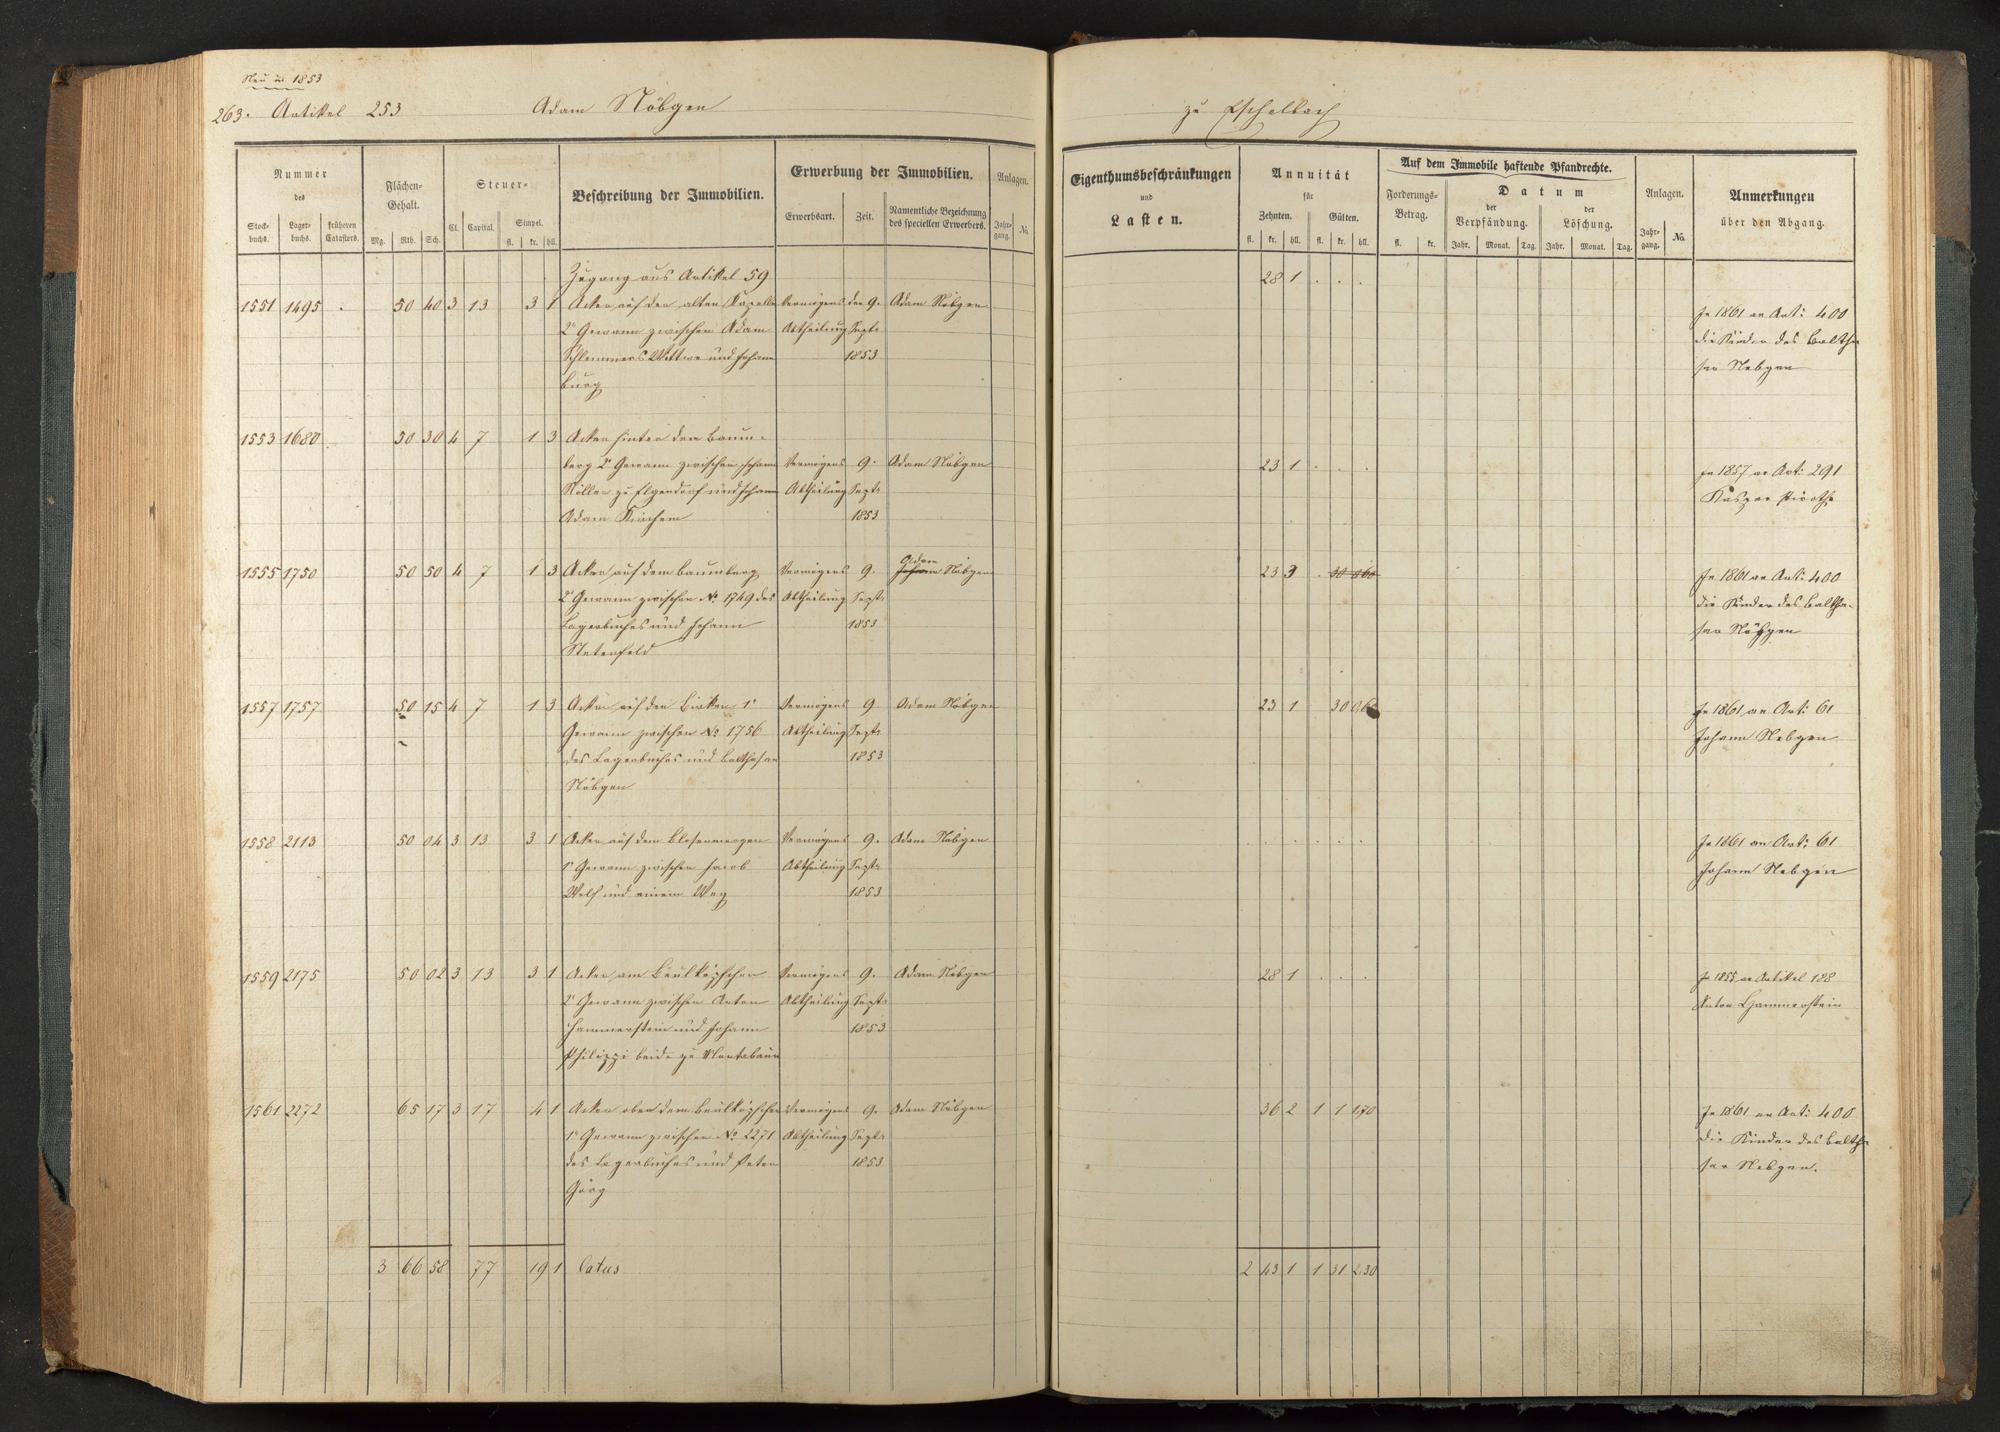 Neu in 1853
263. Artikel 253 Adam Nöbgen zu Eschelbach
Nummer
des
Stock-
buchs.
Lager-
buchs.
früheren
Catasters.
Flächen-
Gehalt.
Mg. Rth. Sch.
Steuer-
Cl. Capital. Simpel.
fl. kr. hll.
Beschreibung der Immobilien.
Erwerbung der Immobilien.
Erwerbsart. Zeit. Namentliche Bezeichnung
des speciellen Erwerbers.
Anlagen.
Jahr-
gang. No.
Eigenthumsbeschränkungen
und
Lasten.
Annuität
für
Zehnten. Gülten.
fl. kr. hll. fl. kr. hll.
Auf dem Immobile haftende Pfandrechte.
Forderungs-
Betrag.
fl. kr.
Datum
der
Verpfändung.
der
Löschung.
Jahr. Monat. Tag. Jahr. Monat. Tag.
Anlagen.
Jahr-
gang. No.
Anmerkungen
über den Abgang.
Zugang aus Artikel 59
1551 1495 50 40 3 13 3 1 Acker auf der alten Kapelle Vermögens den 9. Adam Nöbgen
2r Gewann zwischen Adam Abtheilung Sept.
Schlemmers Wittwe und Johann 1853
Burg
28 1
In 1861 an Art: 400
die Kinder des Baltha
sar Nebgen
1553 1680 50 30 4 7 1 3 Acker hinter dem Baum-
berg 2r Gewann zwischen Johann Vermögens 9. Adam Nöbgen
Müller zu Elgendorf und Johann Abtheilung Sept.
Adam Kirchem 1853
23 1
In 1857 an Art: 291
Kaspar Piroth
1555 1750 50 50 4 7 1 3 Acker auf dem Baumberg Vermögens 9. Adam
Johann Nöbgen
2r Gewann zwischen No. 1749 des Abtheilung Sept.
Lagerbuches und Johann 1853
Statenfeld
23 3 30 060
In 1861 an Art: 400
die Kinder des Baltha-
sar Nöbgen
1557 1757 50 15 4 7 1 3 Acker auf den Birken 1r Vermögens 9 Adam Nöbgen
Gewann zwischen No 1756 Abtheilung Sept.
des Lagerbuches und Balthasar 1853
Nöbgen
23 1 30 060
In 1861 an Art: 61
Johann Nebgen
1558 2113 50 04 3 13 3 1 Acker auf dem Vermögens 9. Adam Nöbgen
1r Gewann zwischen Jacob Abtheilung Sept.
Wolf und einem Weg 1853
In 1861 an Art: 61
Johann Nebgen
1559 2175 50 02 3 13 3 1 Acker am Beulköpfchen Vermögens 9. Adam Nöbgen
2r Gewann zwischen Anton Abtheilung Sept.
Hammerstein und Johann 1853
Philippi beide zu Montabaur
28 1
In 1855 an Artikel 188
Anton Hammerstein
1561 2272 65 17 3 17 4 1 Acker oben dem Beulköpfchen Vermögens 9. Adam Nöbgen
1r Gewann zwischen No 2271 Abtheilung Sept.
des Lagerbuches und Peter 1853
Görg
36 2 1 1 1,70
In 1861 an Art: 400
die Kinder des Baltha
sar Nebgen.
3 66 58 77 19 1 Latus
2 43 1 1 31 2,30